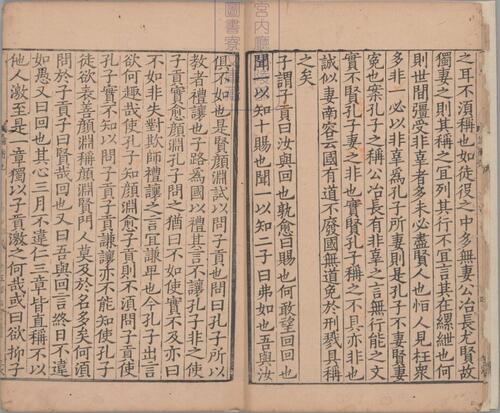 之耳不須稱也如徒役之中多無妻公冶長尤賢故
獨妻之則其稱之宜列其行不宜言其在縲紲也何
則世間彊受非辜者多未必盡賢人也恒人見枉衆
多非一必以非辜爲孔子所妻則是孔子不妻賢妻
冤也案孔子之稱公冶長有非辜之言無行能之文
實不賢孔子妻之非也實賢孔子稱之不具亦非也
誠似妻南容云國有道不廢國無道免於刑戮具稱
之矣
子謂子貢曰汝與回也孰愈曰賜也何敢望回回也
聞一以知十賜也聞一以知二子曰弗如也吾與汝
宮内廳
圖書寮
俱不如也是賢顏淵試以問子貢也問曰孔子所以
教者禮讓也子路爲國以禮其言不讓孔子非之使
子貢實愈顏淵孔子問之猶曰不如使實不及亦曰
不如非失對欺師禮讓之言宜謙卑也今孔子出言
欲何趣哉使孔子知顏淵愈子貢則不須問子貢使
孔子實不知以問子貢子貢謙讓亦不能知使孔子
徒欲表善顏淵稱顏淵賢門人莫及於名多矣何須
問於子貢子曰賢哉回也又曰吾與回言終日不違
如愚又曰回也其心三月不違仁三章皆直稱不以
他人激至是一章獨以子貢激之何哉或曰欲抑子